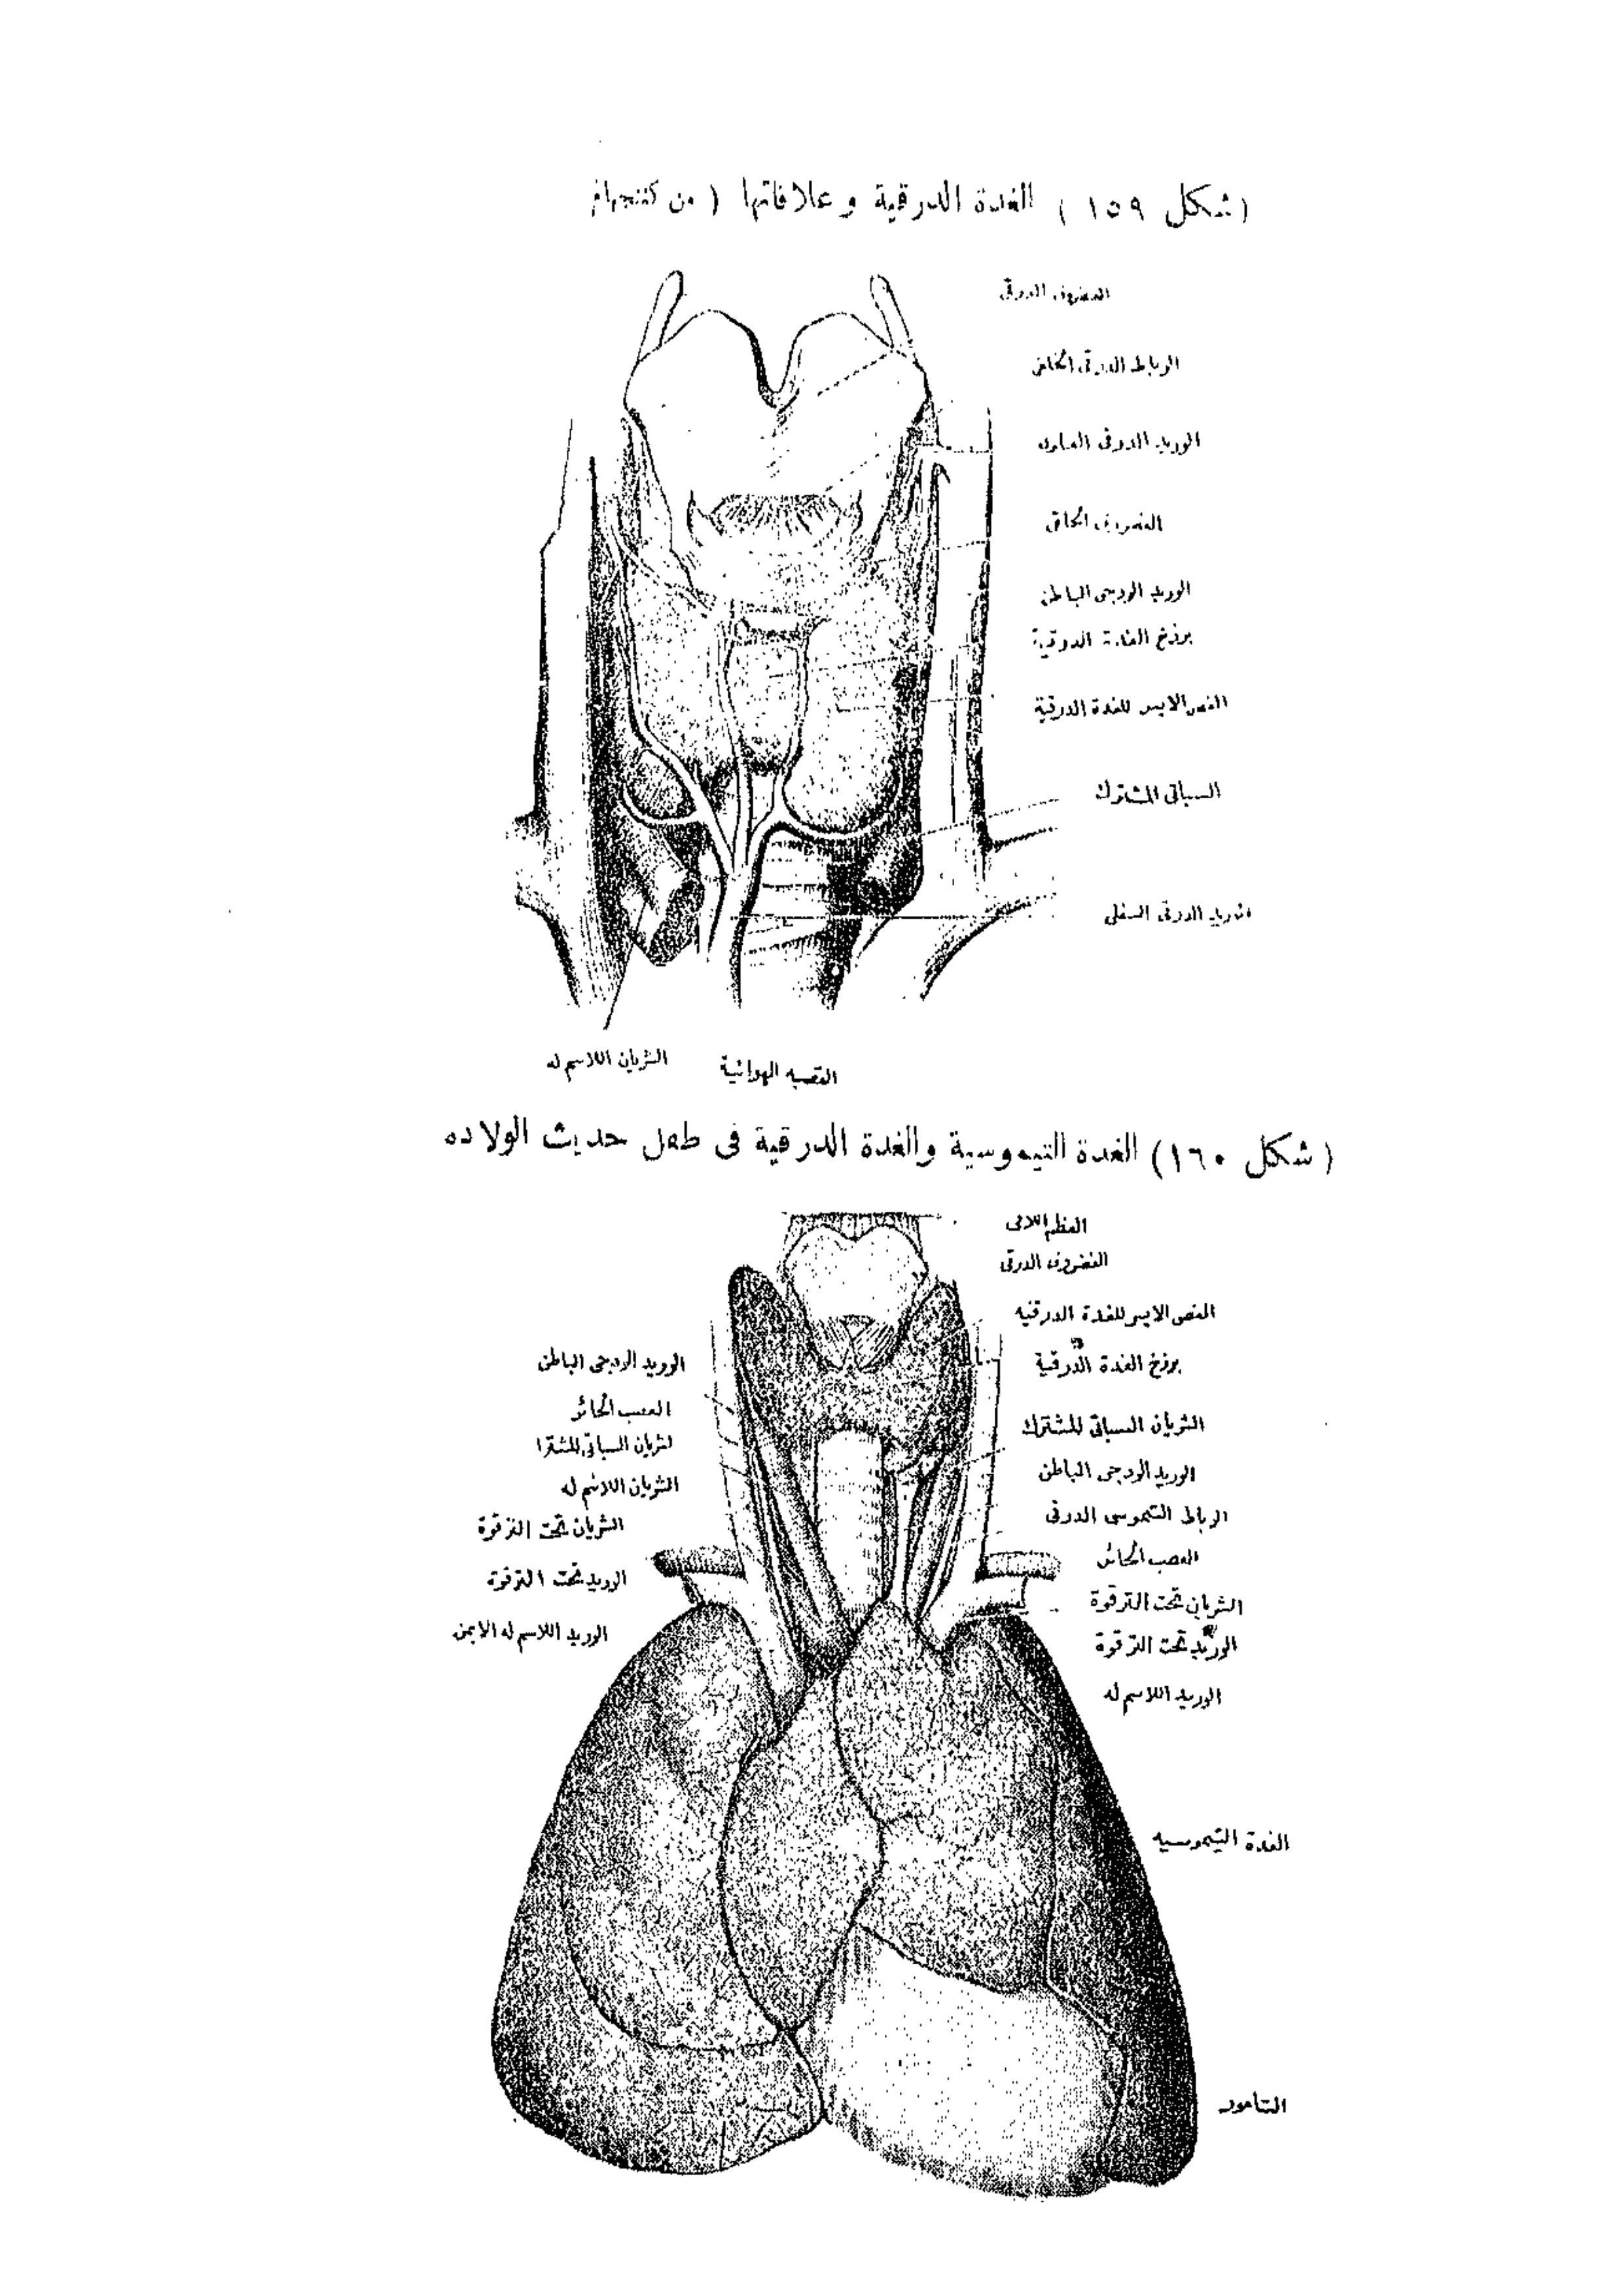 (شكل ١٥٩) الغدة الدرقية وعلاقاتها (من كننجهام
الغضروف الدرقى
الرباط الدرقى الحلقى
الوريد الدرقى العلوى
الغضروف الحلقى
الوريد الودجى الباطن
برزخ الغدة الدرقية
الفص الايسر للغدة الدرقية
السباتى المشترك
الوريد الدرقى السفلى
الشريان اللاسم له
القصبه الهوائية
(شكل ١٦٠) الغدة التيموسية والغدة الدرقية فى طفل حديث الولاده
العظم اللامى
الغضروف الدرقى
الفص الايسر للغدة الدرقيه
برزخ الغدة الدرقية
الشريان السباتى المشترك
الوريد الودجى الباطن
الرباط التيموسى الدرقى
العصب الحائر
الشريان تحت الترقوة
الوريد تحت الترقوة
الوريد اللاسم له
الوريد الودجى الباطن
العصب الحائر
الشريان السباتى المشترك
الشريان اللاسم له
الشريان تحت الترقوة
الوريد تحت الترقوة
الوريد اللاسم له الايمن
الغدة التيموسيه
التامور